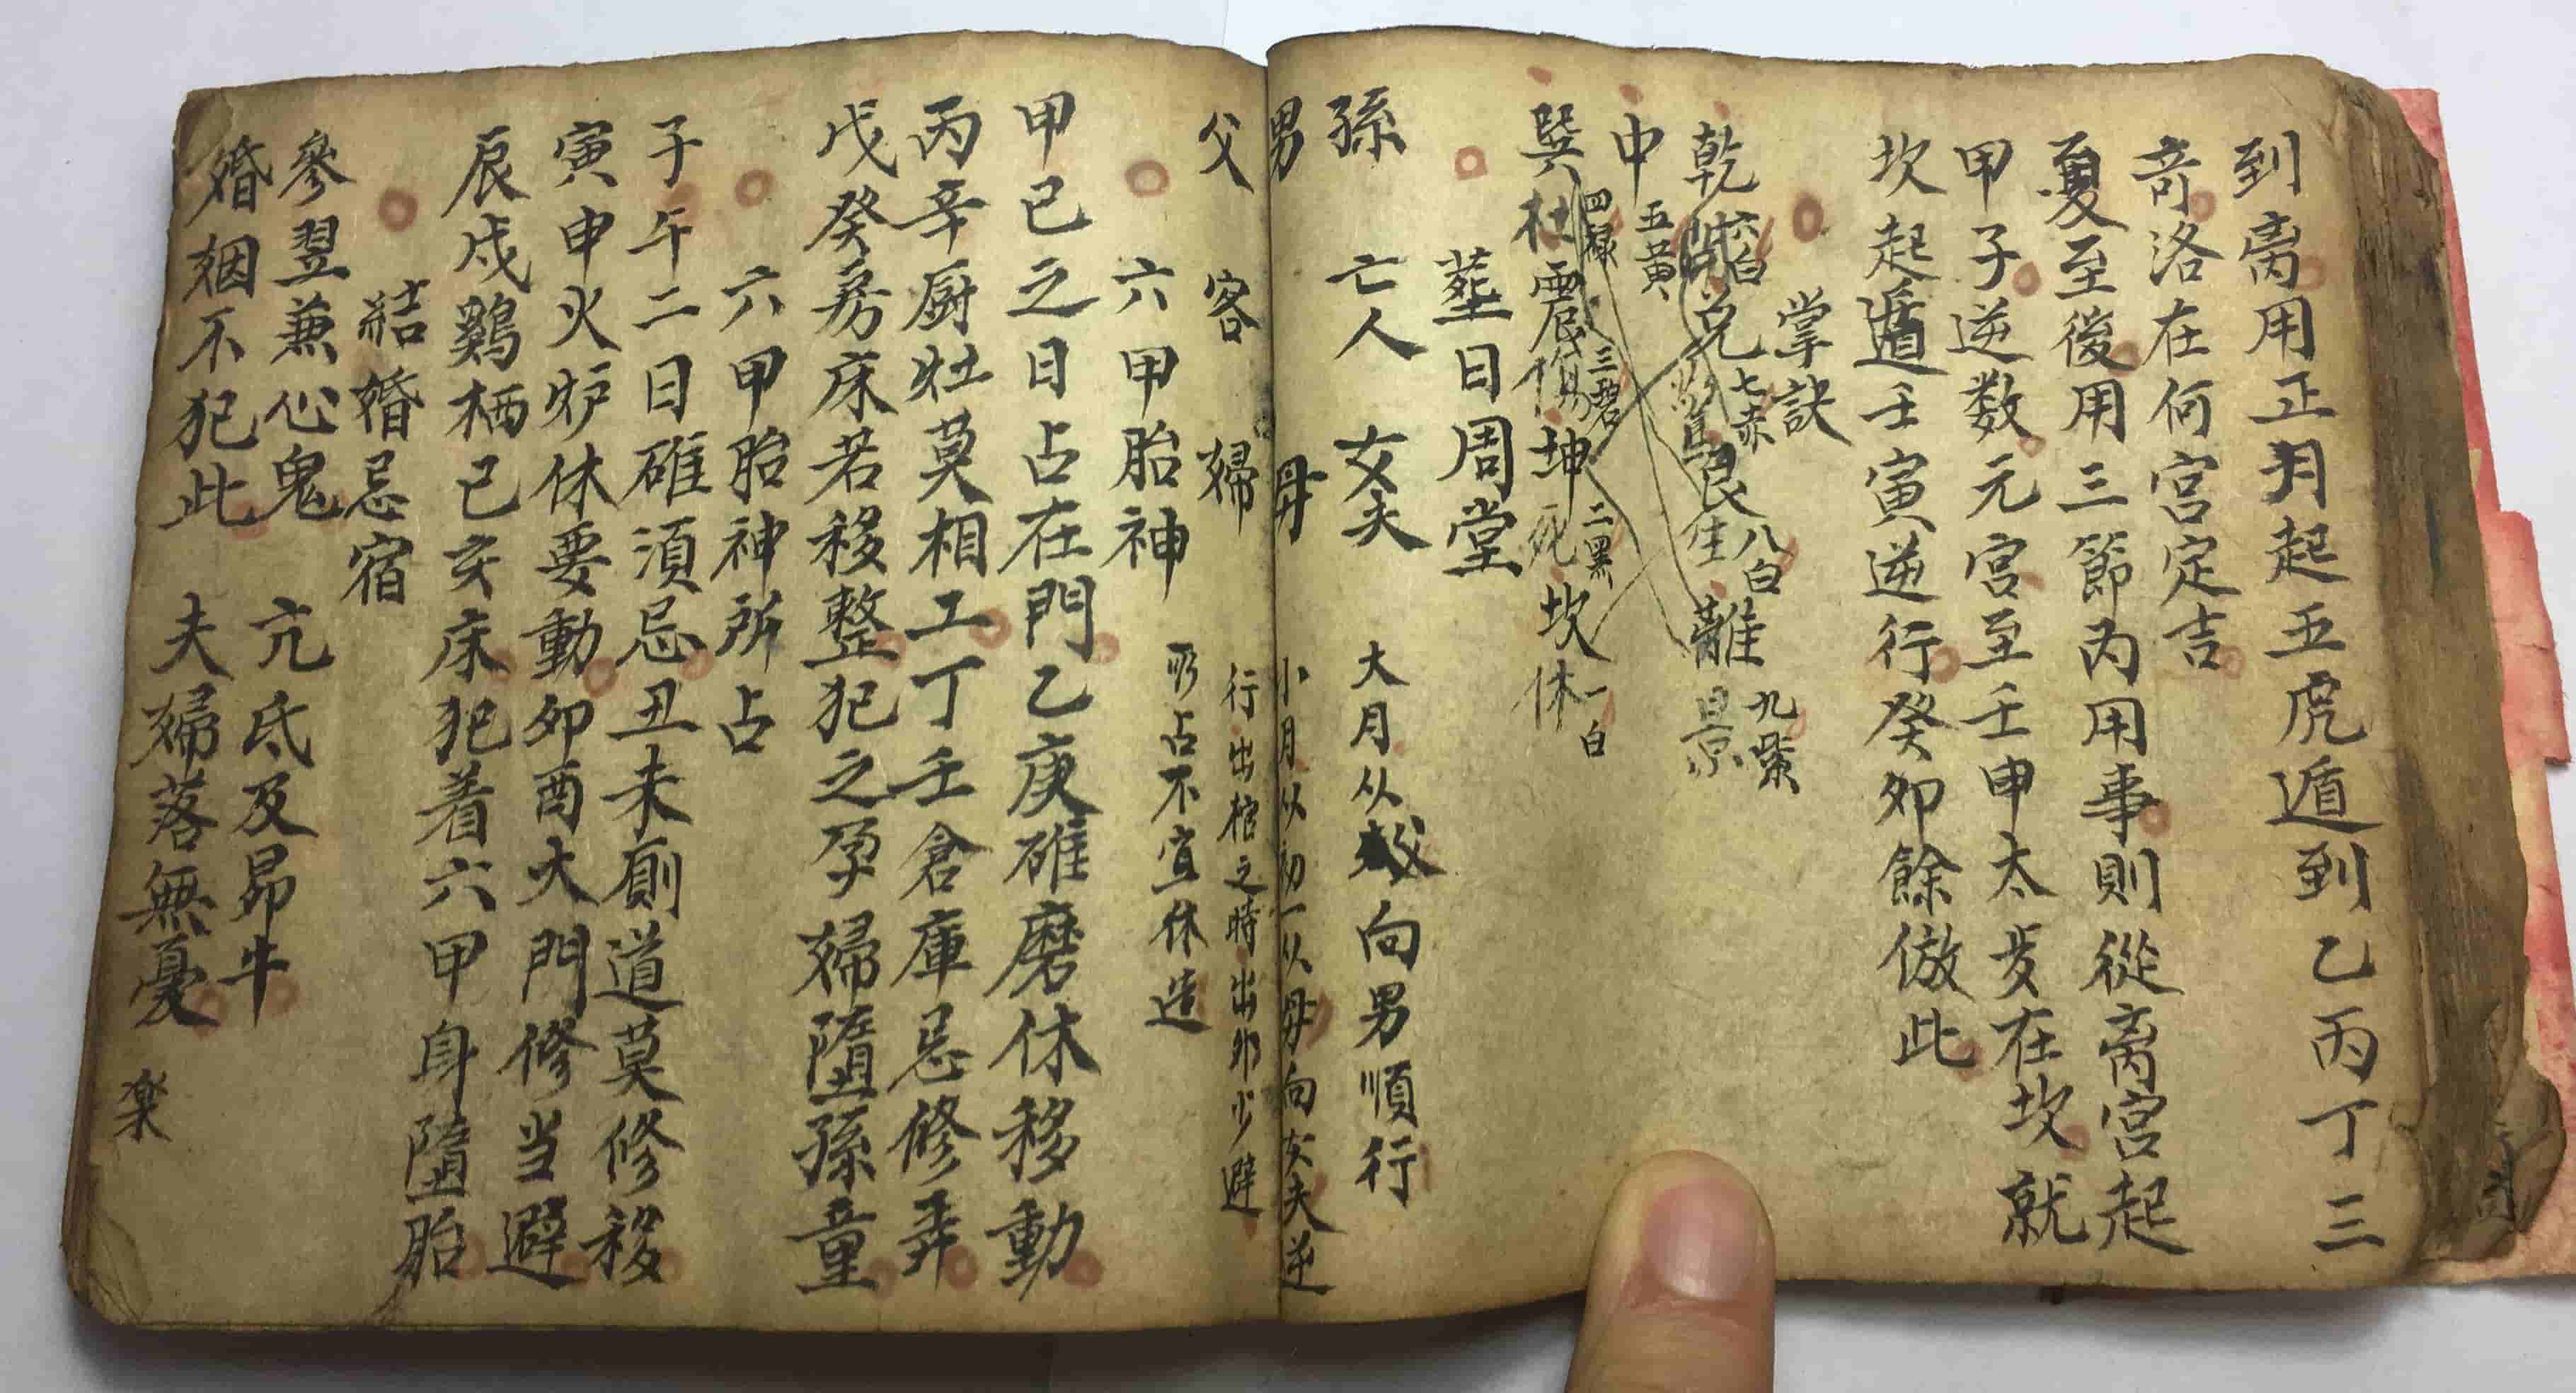 到离用正月起五虎遁到乙丙丁三
奇洛在何宮定吉
夏至後用三節內用事則從离宮起
甲子逆数元宮至壬申太岁在坎就
坎起遁壬寅逆行癸卯餘倣此
掌訣
乾 六白 開 兌 七赤 驚 艮 八白 生 離 九紫 景
中 五黃
巽 四禄 杜 震 三碧 傷 坤 二黑 死 坎 一白 休
塟日周堂
孫 亡人 女夫 大月从父向男順行
男 母 小月从初一从母向女夫逆
父 客 婦 行出棺之時出外少避
六甲胎神 所占不宜休造
甲己之日占在門乙庚碓磨休移動
丙辛厨灶莫相工丁壬倉庫忌修弄
戊癸房床若移整犯之孕婦墮孫童
六甲胎神所占
子午二日碓須忌丑未厠道莫修移
寅申火炉休要動卯酉大門修当避
辰戌鷄栖巳亥床犯着六甲身墮胎
結婚忌宿
參翌兼心鬼 亢氐及昴牛
婚姻不犯此 夫婦落無憂
楽